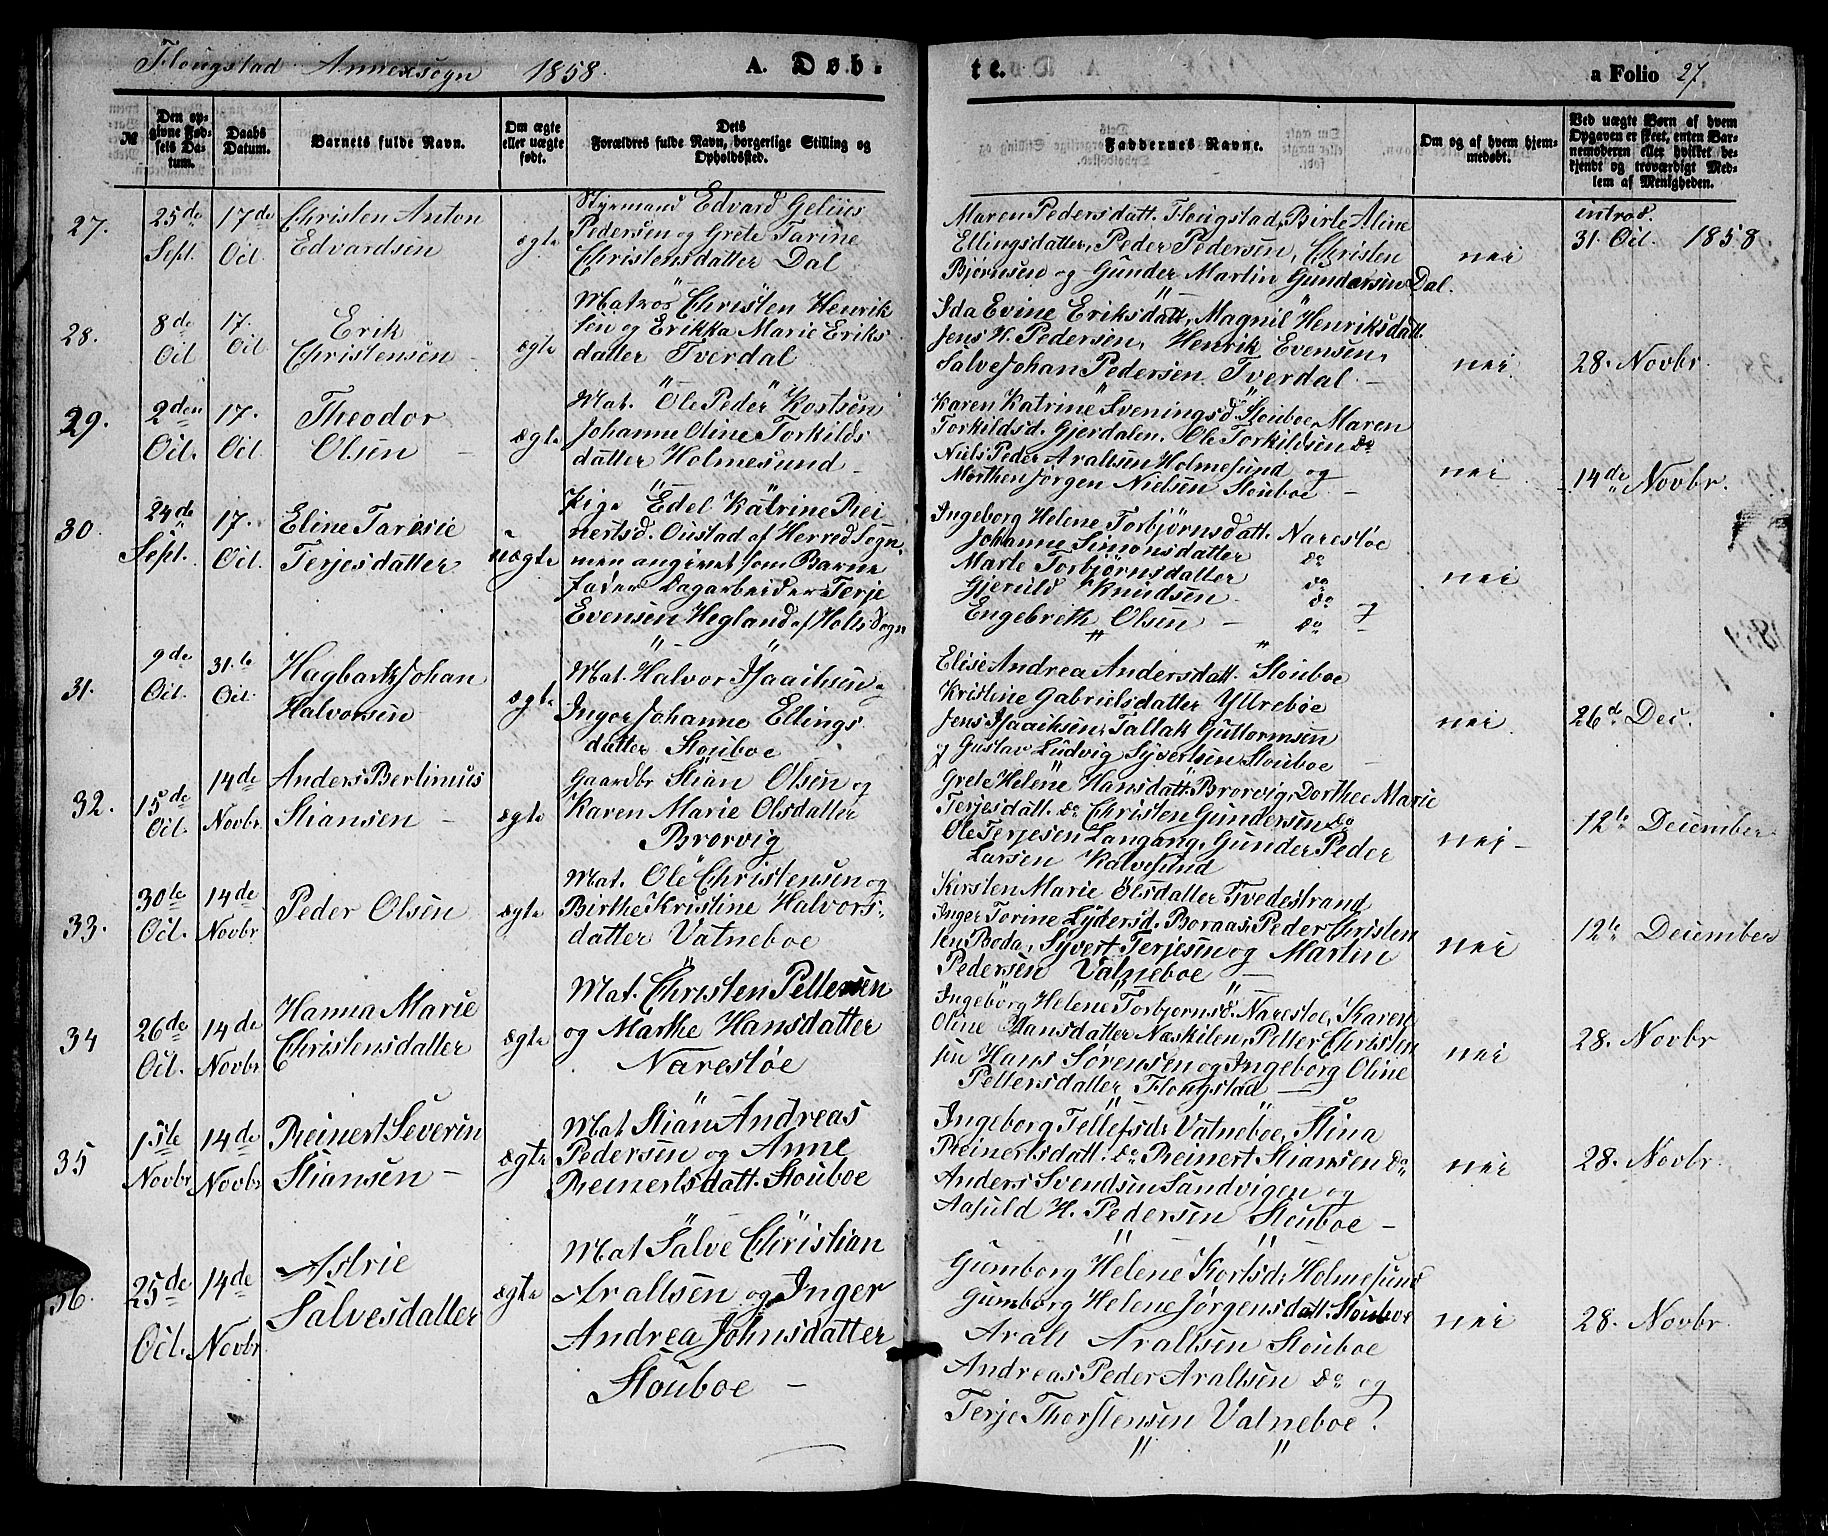 Flougstad Annexsogn 1858. A. Døb-
te. a Folio 27
№
Den op-
givne Fød-
sels Da-
tum.
Daabs
Datum.
Barnets fulde Navn.
Om ægte
eller uægte
født.
Dets
Forældres fulde Navn, borgerlige Stilling og
Opholdssted.
Faddernes Navne.
Om og af hvem hjem-
medøbt.
Ved uægte Børn af hvem
Opgaven er skeet, enten Bar-
nemoderen eller hvilket be-
kjendt og troværdigt Med-
lem af Menigheden.
27.
25de
Sept.
17de
Oct.
Christen Anton
Edvardsen
ægte
Styrmand Edvard Gelius
Pedersen og Grete Tarine
Christensdatter Dal
Maren Pedersdatt. Flougstad, Birte Aline
Ellingsdatter, Peder Pedersen, Christen
Bjørnsen og Gunder Martin Gundersen Dal.
nei
introd.
31. Oct. 1858
28.
8de
Oct
17.
Oct
Erik
Christensen
ægte
Matros Christen Henrik
sen og Erikka Marie Eriks
datter Tverdal
Ida Evine Eriksdatt, Magnil Henriksdatt.
Jens H. Pedersen, Henrik Evensen,
Salve Johan Pedersen Tverdal –
nei
28. Novbr
29.
2den
Oct.
17.
Oct.
Theodor
Olsen –
ægte
Mat. Ole Peder Kostsen
Johanne Oline Torkilds
datter Holmesund –
Karen Katrine Sveningsd. Stouboe, Maren
Torkildsd. Gjerdalen, Ole Torkildsen do
Niels Peder Araltsen Holmesund og
Morthen Jørgen Nielsen Stouboe –
nei
14de Novbr.
30.
24de
Sept.
17.
Oct.
Eline Taresie
Terjesdatter
uægte
Pige Edel Katrine Rei
nertsd. Oustad af Herred Sogn,
men angivet som Barne
fader Dagarbeider Terje
Evensen Hegland af Holts Sogn
Ingeborg Helene Torbjørnsdatt. Narestøe
Johanne Simonsdatter do
Marte Torbjørnsdatter do
Gjeruld Knudsen do
Engebreth Olsen – do
nei
31.
9de
Oct.
31.te
Oct.
Hagbart Johan
Halvorsen
ægte
Mat. Halvor Isaaksen
Inger Johanne Ellings
datter Stouboe
Elise Andrea Andersdatt. Stouboe
Kristine Gabrielsdatter Yttrebøe
Jens Isaaksen, Tallak Guttormsen
og Gustav Ludvig Syvertsen Stouboe –
nei.
26de Dec.
32.
15de
Oct.
14de
Novbr
Anders Bertinius
Stiansen –
ægte
Gaardbr Stian Olsen og
Karen Marie Olsdatter
Brorvig
Grete Helene Hansdatt. Brorvig, Dorthee Marie
Terjesdatt. do Christen Gundersen do
Ole Terjesen Langang, Gunder Peder
Larsen Kalvesund
nei –
12te December
33.
30te
Oct.
14de
Novbr
Peder Olsen
ægte
Mat. Ole Christensen og
Birthe Kristine Halvors-
datter Vatneboe
Kirsten Marie Olsdatter Tvedestrand
Inger Torine Lydersd. Boraas, Peder Christen
sen Boda, Syvert Terjesen og Martin
Pedersen Vatneboe –
nei
12te December
34
26de
Oct.
14de
Novbr
Hanna Marie
Christensdatter
ægte
Mat. Christen Pettersen
og Marthe Hansdatter
Narestøe
Ingebørg Helene Torbjornsd. Narestøe, Karen
Oline Hansdatter Næskilen, Petter Christen
sen Hans Sørensen og Ingeborg Oline
Pettersdatter Flougstad –
nei
28. Novbr
35
1ste
Novbr
14de
Novbr
Reinert Severin
Stiansen –
ægte
Mat Stian Andreas
Pedersen og Anne
Reinertsdatt. Stouboe
Ingeborg Tellefsd. Vatneboe, Stina
Reinertsdatt. do Reinert Stiansen do
Anders Svendsen Sandvigen og
Aasuld H. Pedersen Stouboe –
nei
28. Novbr.
36.
25de
Oct.
14de
Novbr
Astrie
Salvesdatter
ægte
Mat Salve Christian
Araltsen og Inger
Andrea Johnsdatter
Stouboe –
Gumborg Helene Kortsd. Holmesund
Gumborg Helene Jørgensdatt. Stouboe
Aralt Araltsen Stouboe
Andreas Peder Araltsen do og
Terje Thorstensen Vatneboe.
nei
28. Novbr.